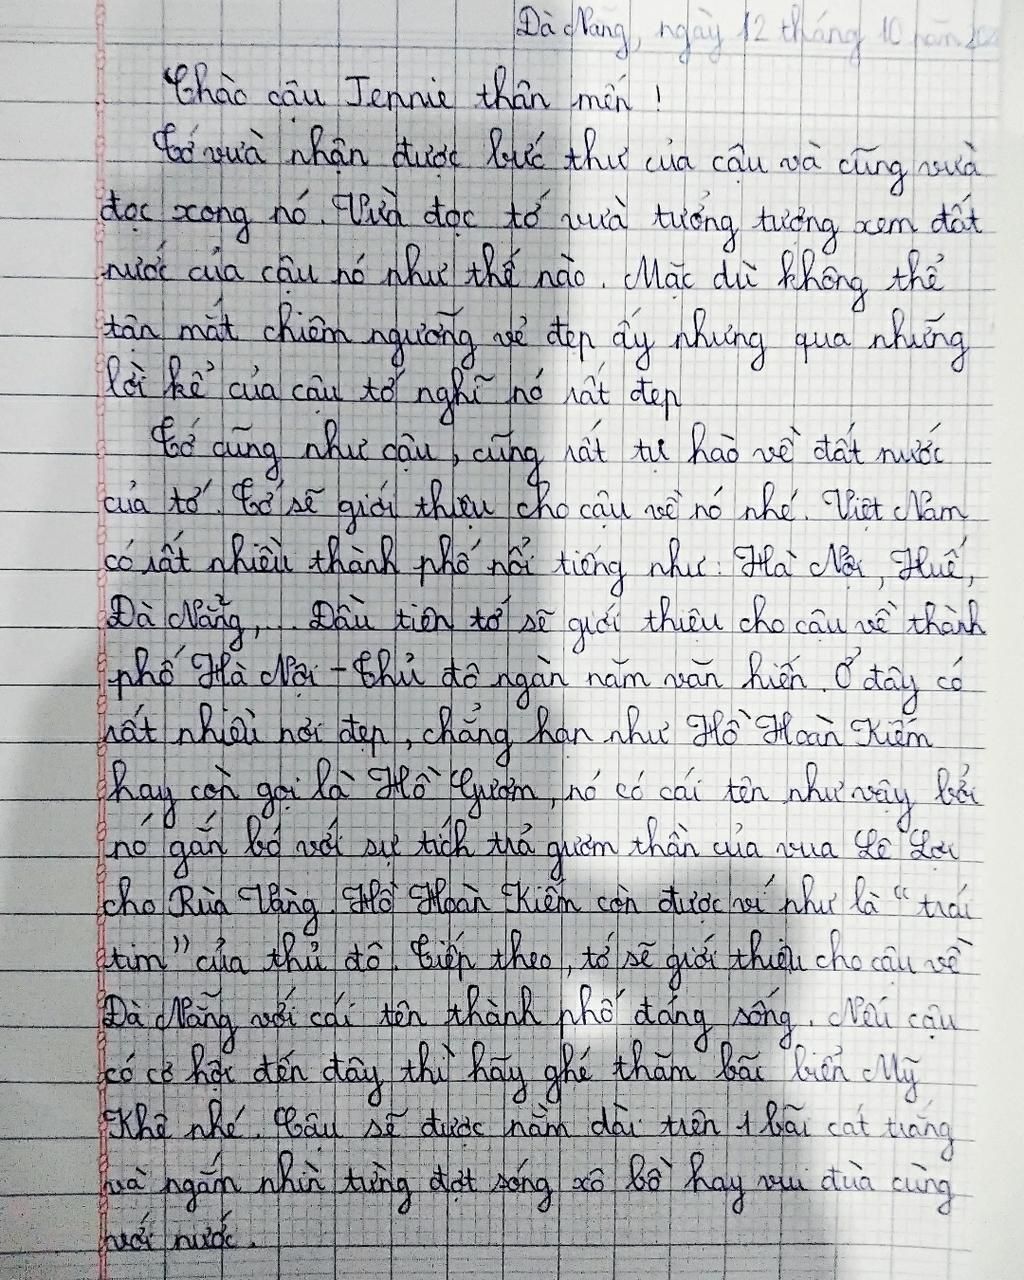 Đà Nẵng, ngày 12 tháng 10 năm 202
Chào cậu Jennie thân mến !
Tớ vừa nhận được bức thư của cậu và cũng vừa
đọc xong nó. Vừa đọc tớ vừa tưởng tượng xem đất
nước của cậu nó như thế nào. Mặc dù không thể
tận mắt chiêm ngưỡng vẻ đẹp ấy nhưng qua những
lời kể của cậu tớ nghĩ nó rất đẹp
Tớ cũng như cậu, cũng rất tự hào về đất nước
của tớ. Tớ sẽ giới thiệu cho cậu về nó nhé. Việt Nam
có rất nhiều thành phố nổi tiếng như: Hà Nội, Huế,
Đà Nẵng,... Đầu tiên tớ sẽ giới thiệu cho cậu về thành
phố Hà Nội - Thủ đô ngàn năm văn hiến. Ở đây có
rất nhiều nơi đẹp, chẳng hạn như Hồ Hoàn Kiếm
hay còn gọi là Hồ Gươm, nó có cái tên như vậy bởi
nó gắn bó với sự tích trả gươm thần của vua Lê Lợi
cho Rùa Vàng. Hồ Hoàn Kiếm còn được ví như là “trái
tim” của thủ đô. Tiếp theo, tớ sẽ giới thiệu cho cậu về
Đà Nẵng với cái tên thành phố đáng sống. Nếu cậu
có cơ hội đến đây thì hãy ghé thăm bãi biển Mỹ
Khê nhé. Cậu sẽ được nằm dài trên 1 bãi cát trắng
và ngắm nhìn từng đợt sóng xô bờ hay vui đùa cùng
với nước.